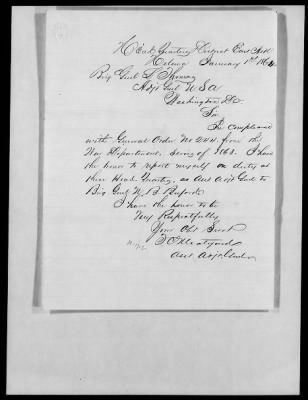 Head Quarters District East Ark
Helena January 1st 1864
Brig Genl L Thomas
Adjt Genl U S A
Washington D.C.
Sir
In compliance
with General Order No 244 from the
War Department, series of 1863. I have
the honor to report myself on duty at
these Head Quarters, as Asst Adjt Genl to
Brig Genl N. B. Buford
I have the honor to be
Very Respectfully
Your Obt Servt
Asst Adjt